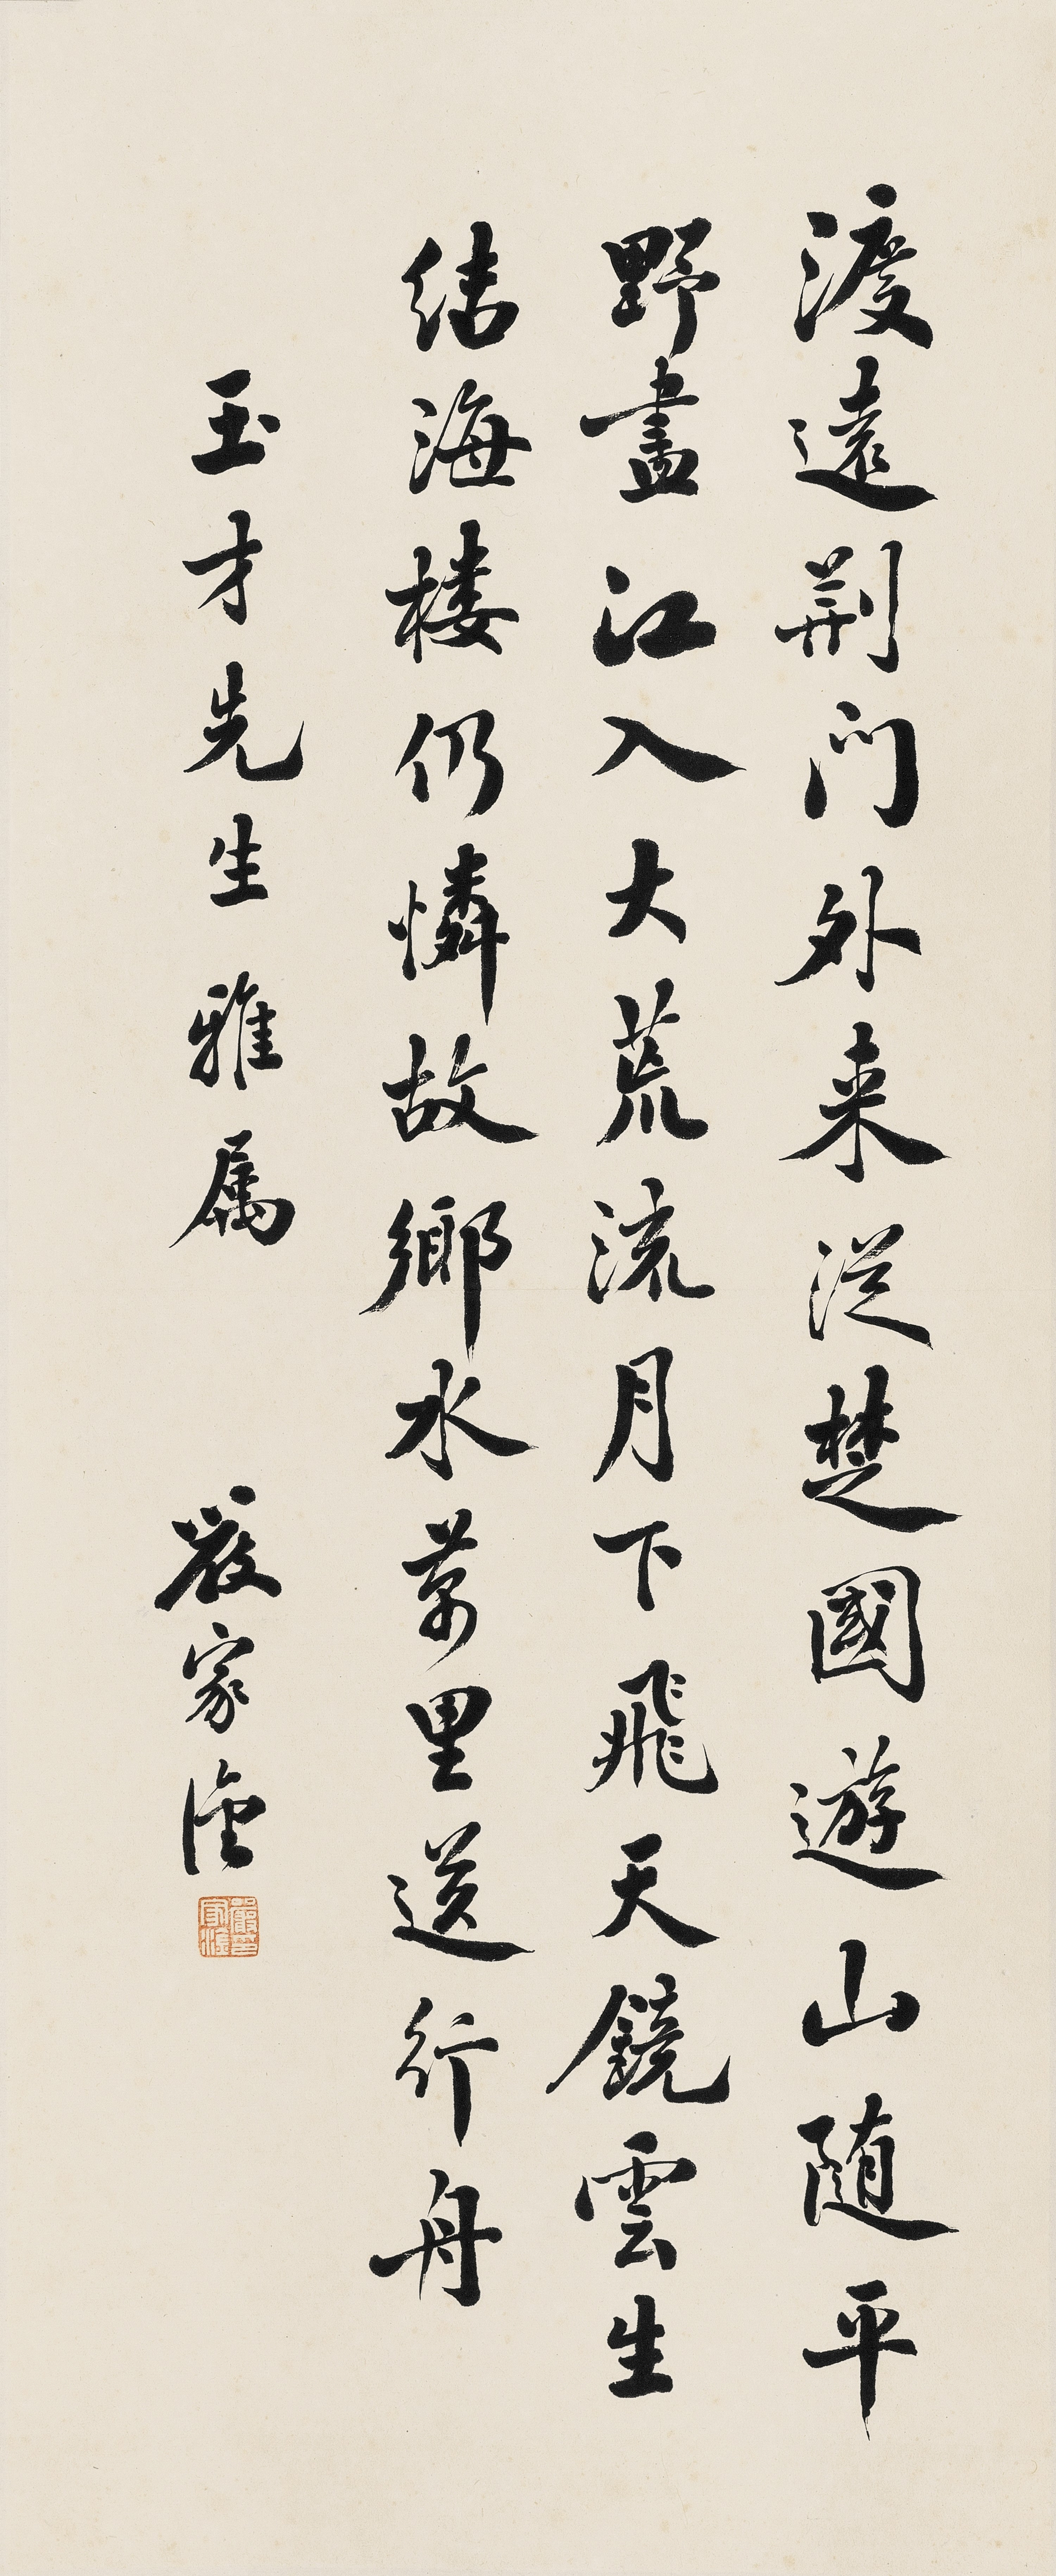 渡遠荊門外来從楚國遊山随平
野盡江入大荒流月下飛天鏡雲生
結海楼仍憐故鄉水萬里送行舟
玉才先生雅属 嚴家淦
嚴家淦印